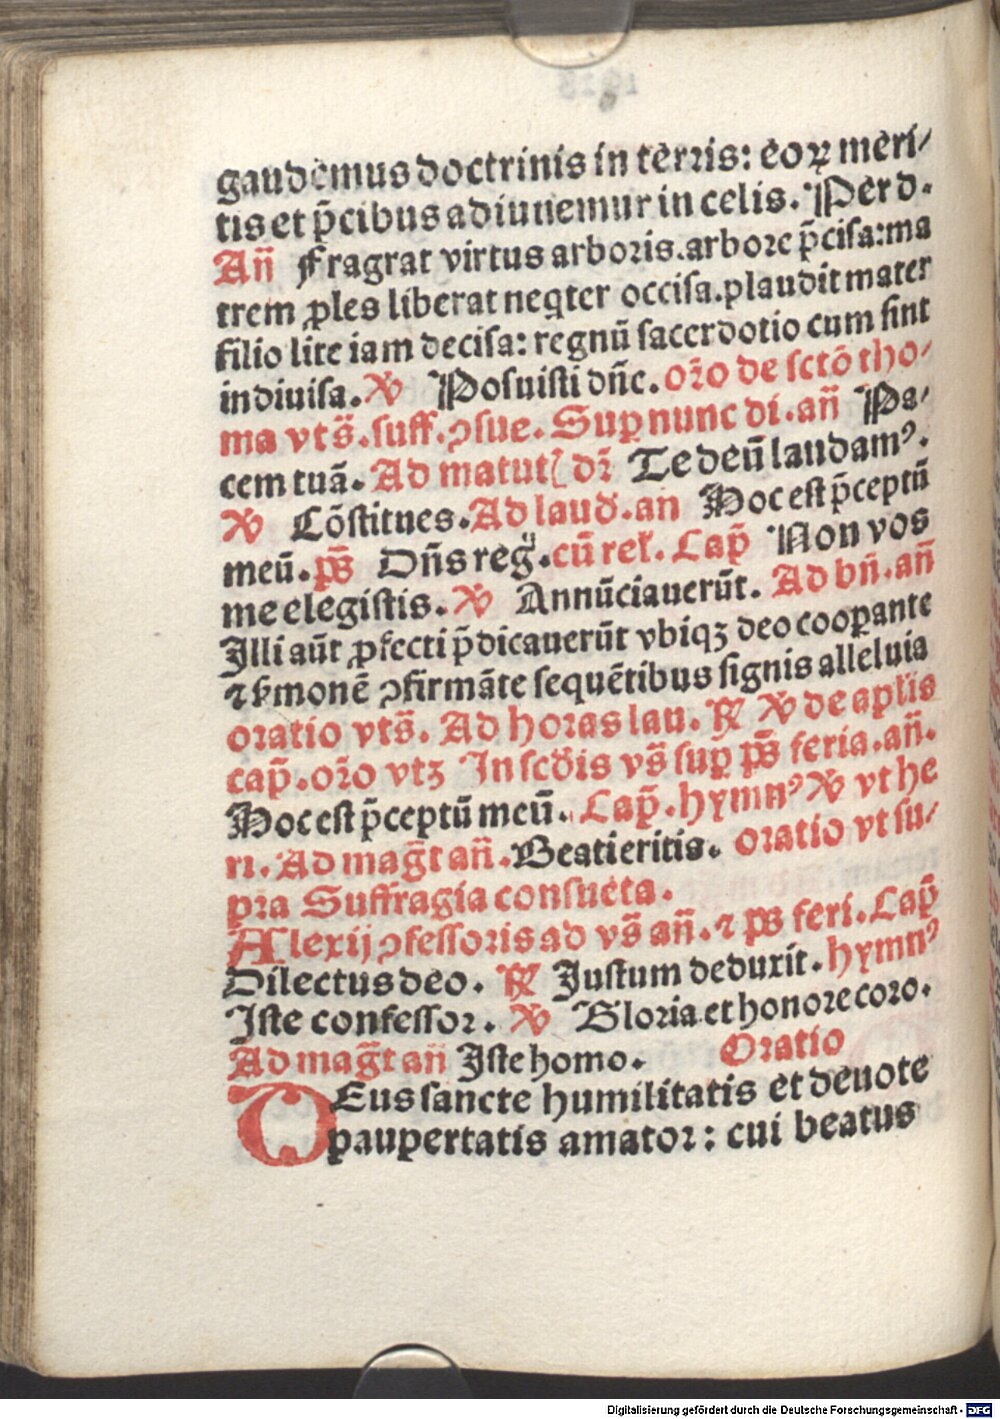 gaudemus doctrinis in terris: eoꝝ meri-
tis et p̄cibus adiuuemur in celis. Per d.
An̄ Fragrat virtus arboris. arbore p̄cisa: ma
trem ꝓles liberat neqter occisa. plaudit mater
filio lite iam decisa: regnū sacerdotio cum sint
indiuisa. ℣ Posuisti dn̄e. or̄o de sctō tho-
ma vts̄. suff. ꝯsue. Suꝑ nunc di. an̄ Pa-
cem tuā. Ad matut̄ dr̄ Te deū laudamꝰ.
℣ Cōstitues. Ad laud. an̄ Hoc est p̄ceptū
meū. ps̄ Dn̄s reḡ. cū rel̄. Cap̄ Non vos
me elegistis. ℣ Annūciauerūt. Ad bn̄. an̄
Illi aūt ꝓfecti p̄dicauerūt vbiqꝫ deo cooꝑante
⁊ ẜmonē ꝯfirmāte sequētibus signis alleluia
oratio vts̄. Ad horas lau. ℟ ℣ de apl̄is
cap̄. or̄o vtꝫ In scd̄is vs̄ suꝑ ps̄ feria. an̄.
Hoc est p̄ceptū meū. Cap̄. hymnꝰ ℣ vt he
ri. Ad maḡt an̄. Beati eritis. oratio vt su-
pra Suffragia consueta.
Alexij ꝯfessoris ad vs̄ an̄. ⁊ ps̄ feri. Cap̄
Dilectus deo. ℟ Justum deduxit. hymnꝰ
Iste confessor. ℣ Gloria et honore coro.
Ad maḡt an̄ Iste homo. Oratio
DEus sancte humilitatis et deuote
paupertatis amator: cui beatus
Digitalisierung gefördert durch die Deutsche Forschungsgemeinschaft - DFG